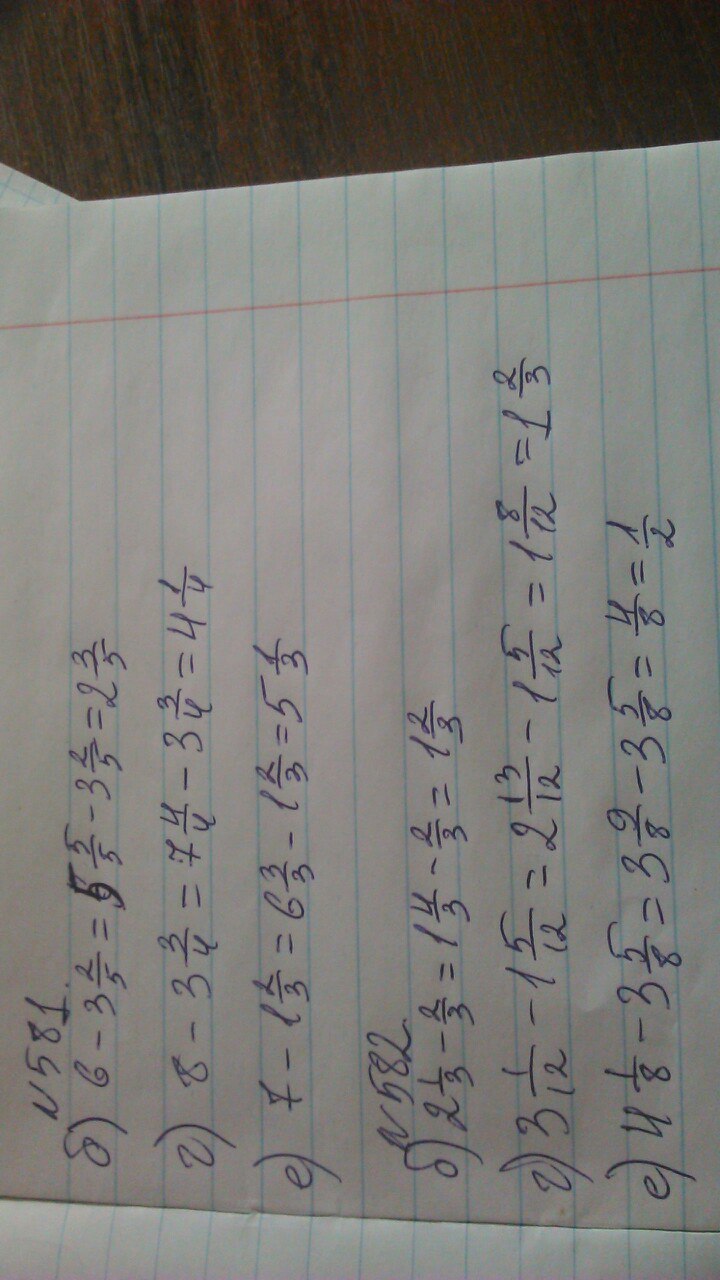 N 581.
б) 6 - 3 2/5 = 5 5/5 - 3 2/5 = 2 3/5
г) 8 - 3 3/4 = 7 4/4 - 3 3/4 = 4 1/4
е) 7 - 1 2/3 = 6 3/3 - 1 2/3 = 5 1/3
N 582.
б) 2 1/3 - 2/3 = 1 4/3 - 2/3 = 1 2/3
г) 3 1/12 - 1 5/12 = 2 13/12 - 1 5/12 = 1 8/12 = 1 2/3
е) 4 1/8 - 3 5/8 = 3 9/8 - 3 5/8 = 4/8 = 1/2